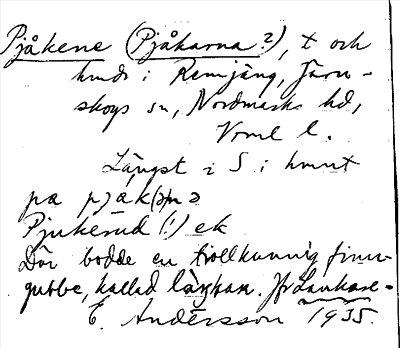 Pjåkene (Pjåkarna?), t och
hmdr i Remjäng, Järn-
skogs sn, Nordmarks hd,
Vrml l.
Längst i S i hmnt
pa pjåk(ə)nə
Pjukerud (!) ek
Där bodde en trollkunnig finn-
gubbe, kallad Lankan. Jfr Lankase-
E. Andersson 1935.